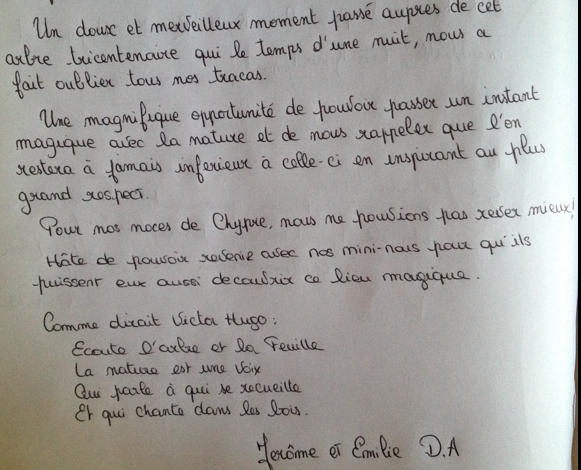 Un doux et merveilleux moment passé aupres de cet
arbre tricentenaire qui le temps d'une nuit, nous a
fait oublier tous nos tracas.
Une magnifique opportunité de pouvoir passer un instant
magique avec la nature et de nous rappeler que l'on
restera à jamais inferieur à celle-ci en inspirant au plus
grand respect.
Pour nos noces de Chypre, nous ne pouvions pas rever mieux!
Hâte de pouvoir revenir avec nos mini-nous pour qu'ils
puissent eux aussi decouvrir ce lieu magique.
Comme dirait Victor Hugo:
Ecoute l'arbre et la Feuille
La nature est une Voix
Qui parle à qui se recueille
Et qui chante dans les bois.
Jerôme et Emilie D.A